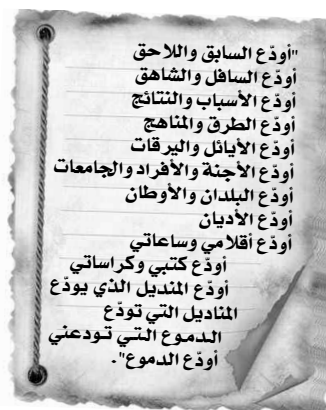 "أودّع السابق واللاحق
أودّع السافل والشاهق
أودّع الأسباب والنتائج
أودّع الطرق والمناهج
أودّع الأيائل واليرقات
أودّع الأجنة والأفراد والجامعات
أودّع البلدان والأوطان
أودّع الأديان
أودّع أقلامي وساعاتي
أودّع كتبي وكراساتي
أودّع المنديل الذي يودّع
المناديل التي تودّع
الدموع التي تودعني
أودّع الدموع".